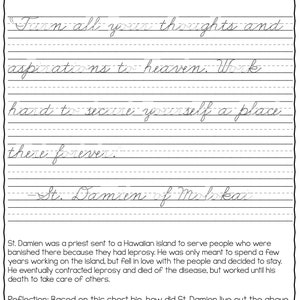 "Turn all your thoughts and
aspirations to heaven. Work
hard to secure yourself a place
there forever.
-St. Damien of Moloka
St. Damien was a priest sent to a Hawaiian island to serve people who were
banished there because they had leprosy. He was only meant to spend a few
years working on the island, but fell in love with the people and decided to stay.
He eventually contracted leprosy and died of the disease, but worked until his
death to take care of others.
Reflection: Based on this short bio, how did St. Damien live out the above